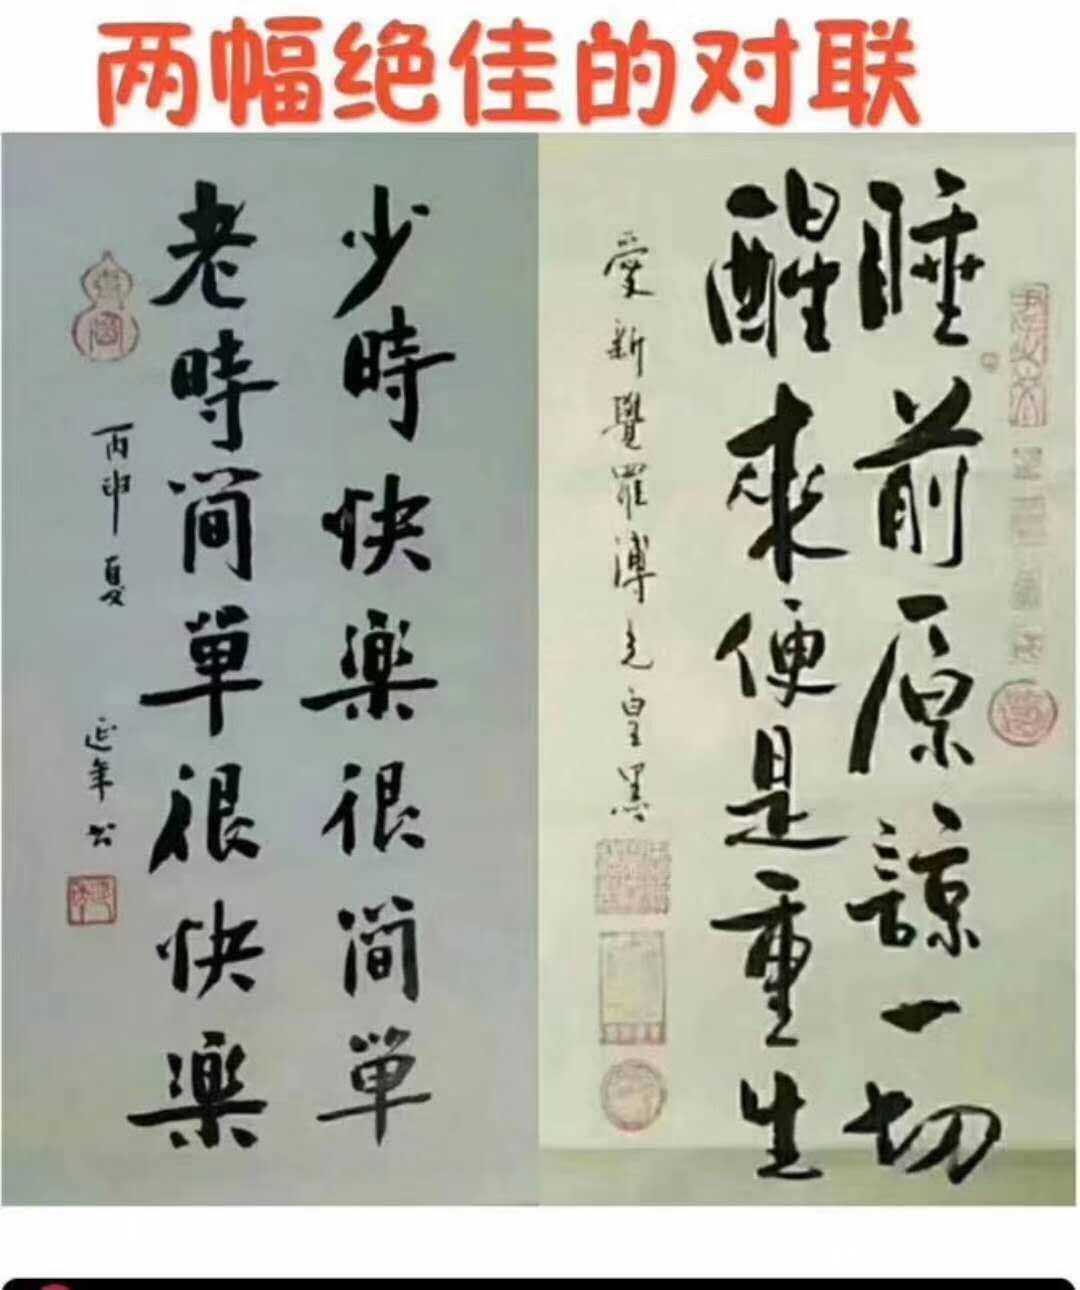 两幅绝佳的对联
睡前原諒一切
醒來便是重生
愛新覺羅溥心皇墨
少時快樂很简單
老時简單很快樂
丙申夏
延年書